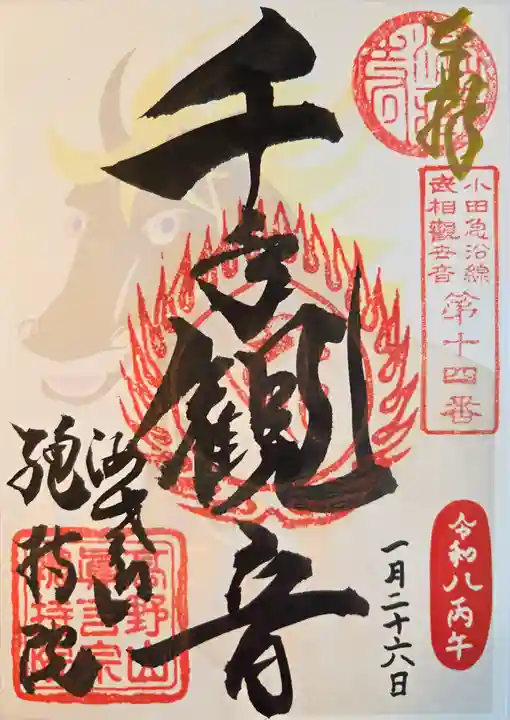 奉拝
小田急沿線
武相觀世音
第十四番
千手観音
令和八丙午
一月二十六日
總持院
高野山
眞言宗
總持院